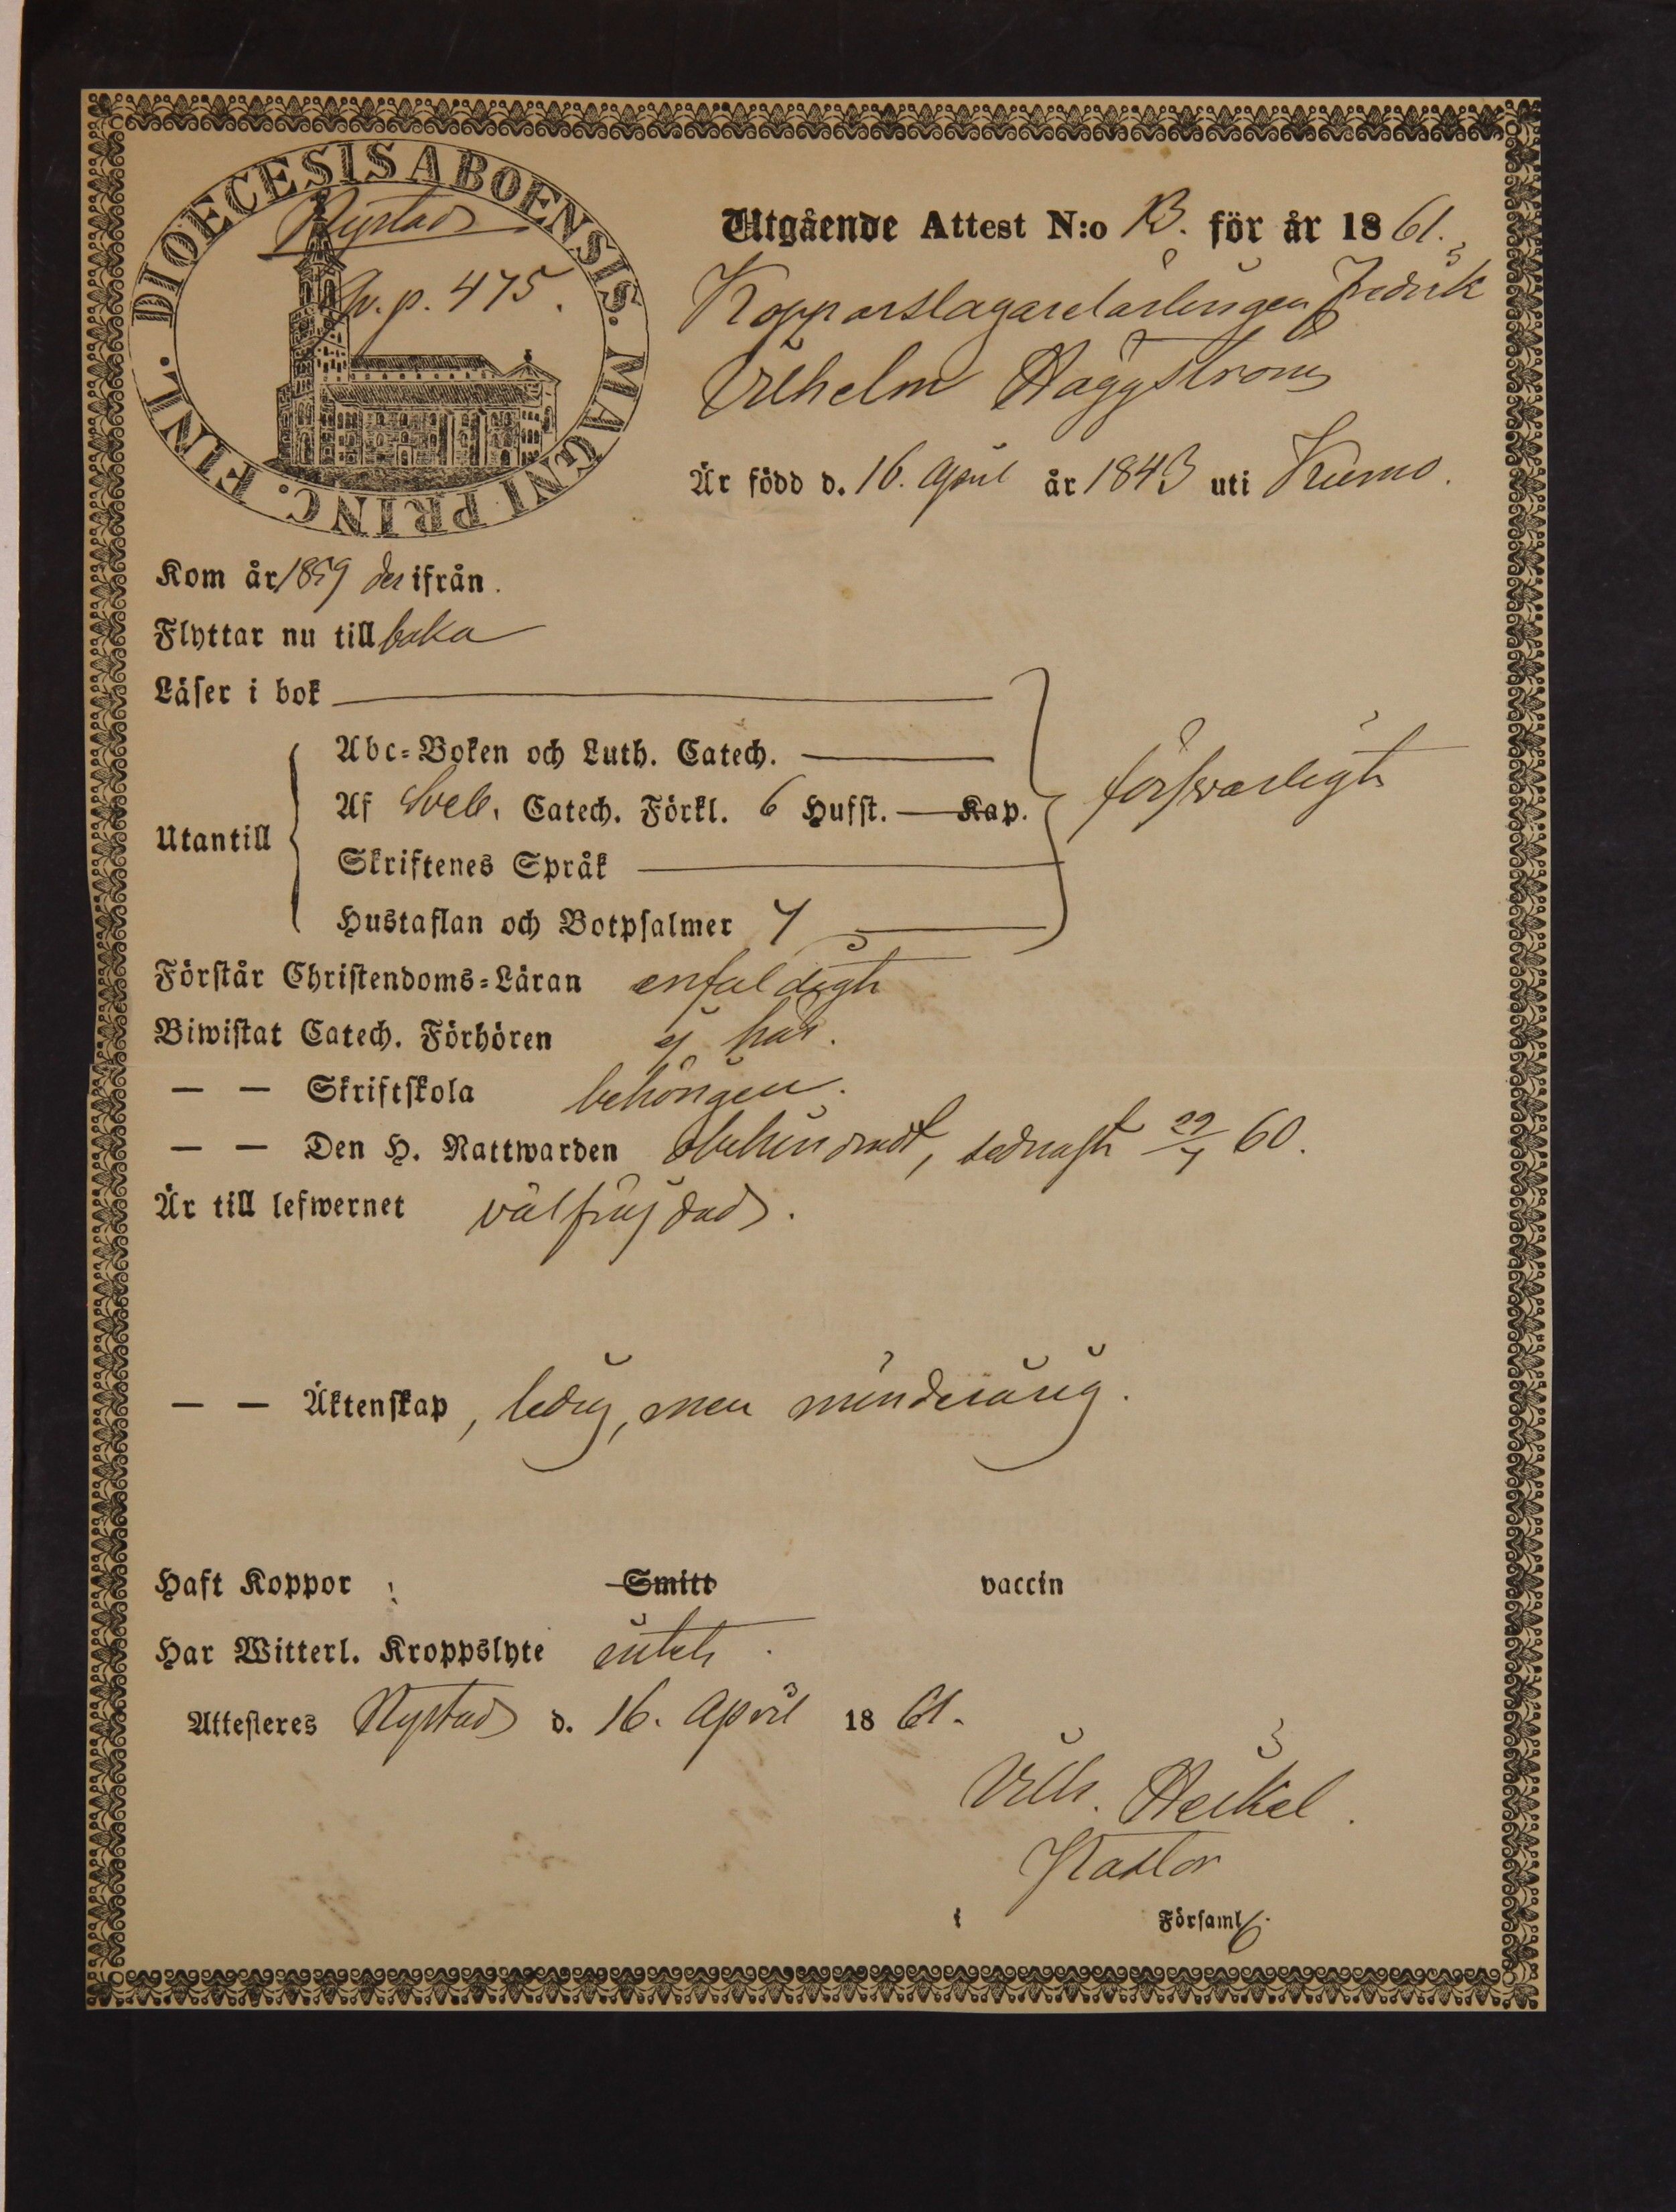 DIOECESIS ABOENSIS. MAGNI PRINC. FINL.
Nystad
Sv. p. 475.
Utgående Attest N:o 13. för år 1861.
Kopparslagarelärlingen Fredrik
Vilhelm Häggström
Är född d. 16. April år 1843 uti Kumo.
Kom år 1859 derifrån.
Flyttar nu tillbaka
Läser i bok
Abc-Boken och Luth. Catech.
Af Sveb. Catech. Förkl. 6 Hufst. Kap.
försvarligt
Utantill
Skriftenes Språk
Hustaflan och Botpsalmer 7
Förstår Christendoms-Läran enfaldigt
Biwistat Catech. Förhören ej här.
— — Skriftskola behörigen.
— — Den H. Nattwarden obehindradt, sednast 22/7 60.
Är till lefwernet välfrejdad.
— — Äktenskap, ledig, men minderårig.
Haft Koppor Smitt vaccin
Har Witterl. Kroppslyte intet.
Attesteres Nystad d. 16. April 1861.
Vilh. Heikel.
Pastor
i Församl.